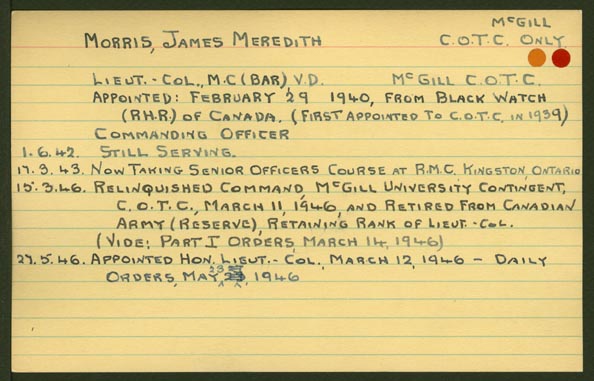 McGILL
MORRIS, JAMES MEREDITH C.O.T.C. ONLY
LIEUT.-COL., M.C (BAR), V.D. McGILL C.O.T.C.
APPOINTED: FEBRUARY 29 1940, FROM BLACK WATCH
(R.H.R.) OF CANADA. (FIRST APPOINTED TO C.O.T.C. IN 1939)
COMMANDING OFFICER
1.6.42. STILL SERVING.
17.3.43. NOW TAKING SENIOR OFFICERS COURSE AT R.M.C. KINGSTON, ONTARIO
15.3.46. RELINQUISHED COMMAND, McGILL UNIVERSITY CONTINGENT,
C.O.T.C., MARCH 11, 1946, AND RETIRED FROM CANADIAN
ARMY (RESERVE), RETAINING RANK OF LIEUT.-COL.
(VIDE: PART I ORDERS, MARCH 14, 1946)
27.5.46. APPOINTED HON. LIEUT.-COL. MARCH 12, 1946 - DAILY
ORDERS, MAY 23, 1946